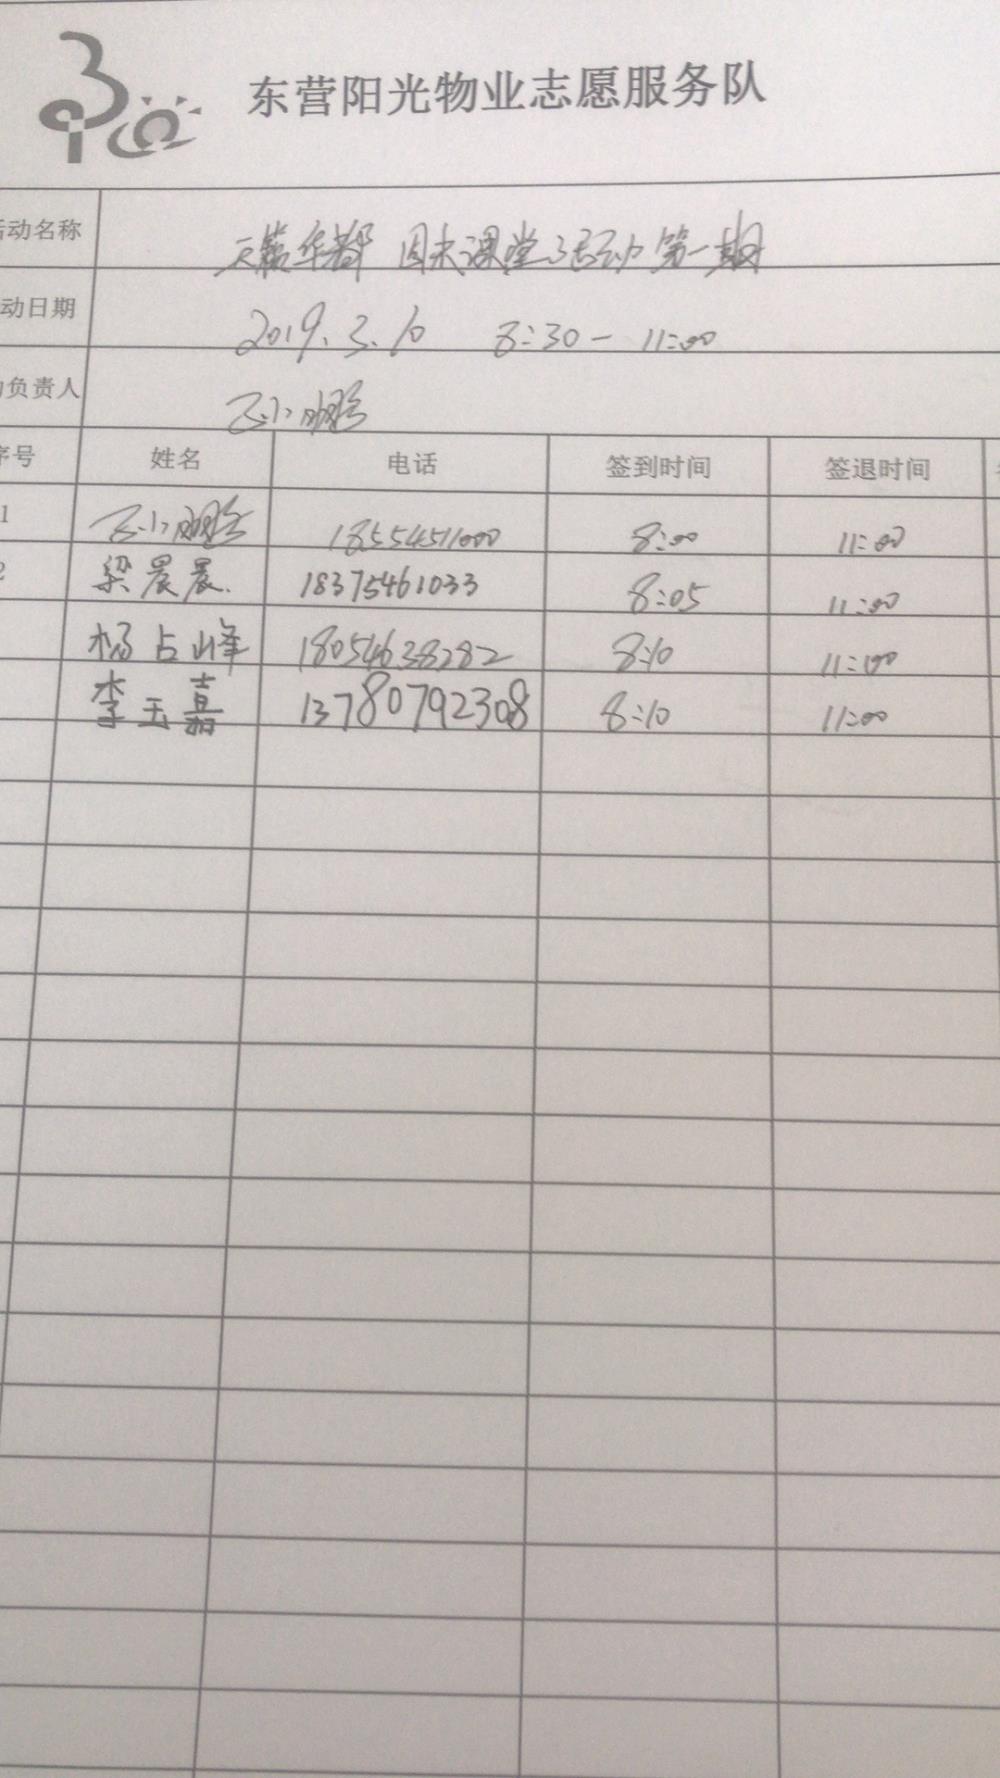 东营阳光物业志愿服务队
活动名称 天籁华都 周末课堂活动第一期
动日期 2019.3.10 8:30-11:00
负责人
序号 姓名 电话 签到时间 签退时间
1 18554511000 8:00 11:00
2 梁晨晨. 18375461033 8:05 11:00
杨占峰 18054638282 8:10 11:00
李玉嘉 13780792308 8:10 11:00